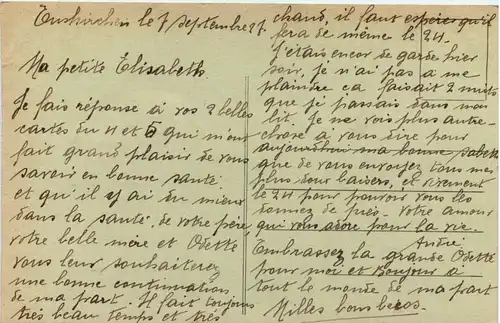 Euskirchen le 7 septembre 27.
Ma petite Elisabeth.
Je fais réponse a vos 2 belles
cartes du 4 et 5 qui m'ont
fait grand plaisir de vous
savoir en bonne santé
et qu'il y ai du mieux
dans la santé de votre père,
votre belle mère et Odette
vous leur souhaiterez
une bonne continuation
de ma part. Il fait toujours
très beau temps et très
chaud, il faut espérer qu'il
fera de même le 24.
J'étais encor de garde hier
soir, je n'ai pas a me
plaindre ca faisait 2 nuits
que je passais dans mon
lit. Je ne vois plus autre-
chose a vous dire pour
aujourd'hui ma bonne sabeth
que de vous envoyer tous mes
plus doux baisers, et vivement
le 24 pour pouvoir vous les
donner de près. Votre amour
qui vous adore pour la vie.
André
Embrassez la grande Odette
pour moi et Bonjour a
tout le monde de ma part
Milles bons becos.